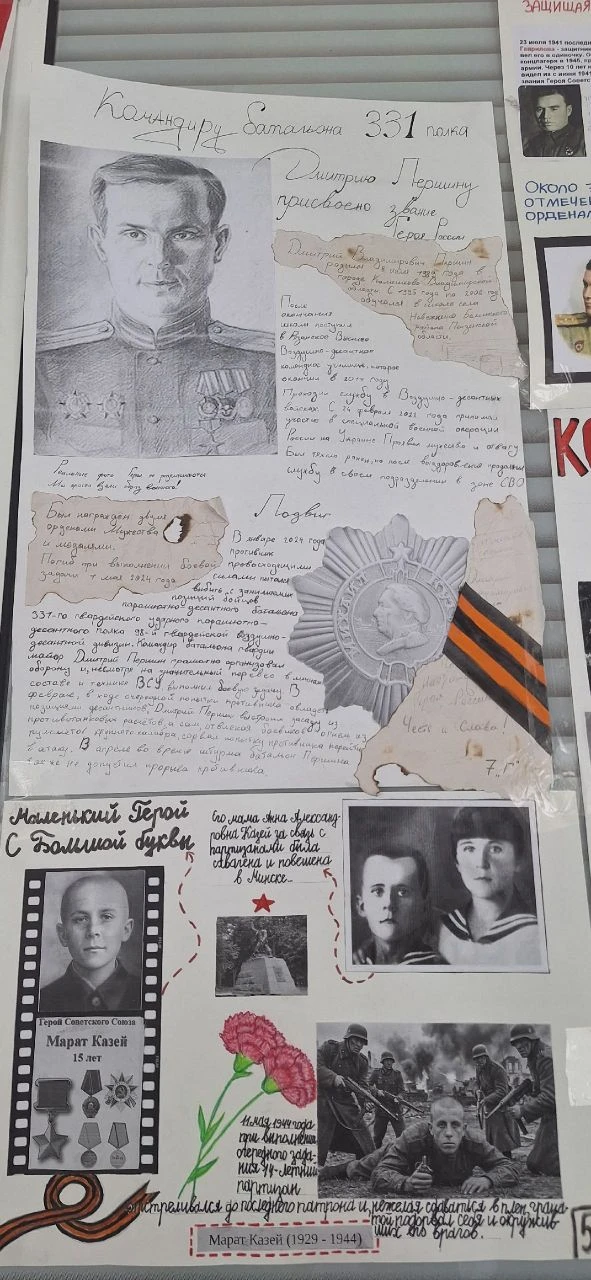 Командиру батальона 331 полка
Дмитрию Першину
присвоено звание
Героя России
Дмитрий Владимирович Першин
родился 8 июля 1989 года в
городе Камешково Владимирской
области. С 1995 года по 2006 год
обучался в школе села
Невежкино Белинского
района Пензенской
области.
После
окончания
школы поступил
в Рязанское Высшее
Воздушно-десантное
командное училище, которое
окончил в 2011 году
Проходил службу в Воздушно-десантных
войсках. С 24 февраля 2022 года принимал
участие в специальной военной операции
России на Украине. Проявил мужество и отвагу
Был тяжело ранен, но после выздоровления продолжил
службу в своём подразделении в зоне СВО
Реальные фото Героя не
Мы взяли образ военного!
Был награжден двумя
орденами Мужества
и медалями.
Погиб при выполнении боевой
задачи 7 мая 2024 года
Подвиг
В январе 2024 года
противник
превосходящими
силами пытался
выбить с занимаемых
позиций бойцов
парашютно-десантного батальона
331-го гвардейского ударного парашютно-
десантного полка 98-й гвардейской воздушно-
десантной дивизии. Командир батальона гвардии
майор Дмитрий Першин грамотно организовал
оборону и, несмотря на значительный перевес в личном
составе и технике ВСУ, выполнил боевую задачу. В
феврале, в ходе очередной попытки противника овладеть
позициями десантников, Дмитрий Першин выстроил засаду из
противотанковых расчетов, а сам отвлекая боевиков огнем из
пулемета крупного калибра, сорвал попытку противника перейти
в атаку. В апреле во время штурма батальон Першина
также не допустил прорыва противника.
Честь и Слава!
7 "Г"
Маленький Герой
С Большой буквы
Его мама Анна Александ-
ровна Казей за связь с
партизанами была
схвачена и повешена
в Минске...
Герой Советского Союза
Марат Казей
15 лет
11 мая 1944 года
при выполнении
очередного зада-
ния 14-летний
партизан
отстреливался до последнего патрона и, не желая сдаваться в плен, грана-
той подорвал себя и окружив-
ших его врагов.
Марат Казей (1929 - 1944)
ЗАЩИЩАЯ
23 июля 1941
Гаврилова - защитник
вел его в одиночку.
концлагеря в 1945,
армии. Через 10 лет
видел их с июня 1941
звания Героя Советс
Около
отмечен
орденам
КО
5